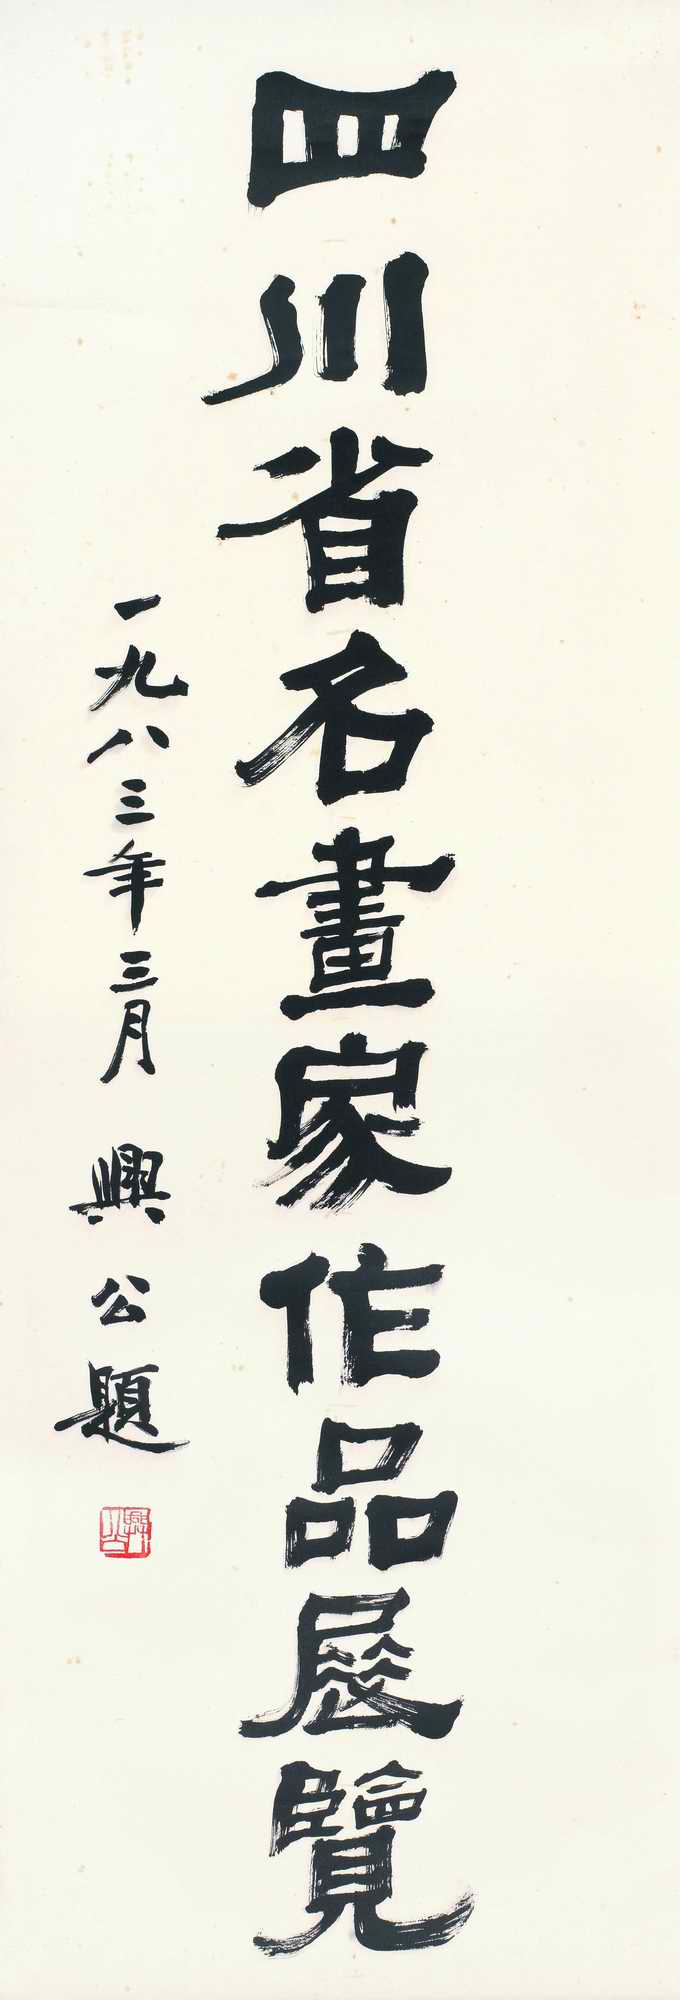 四川省名畫家作品展覽
一九八三年三月 興公題
興公